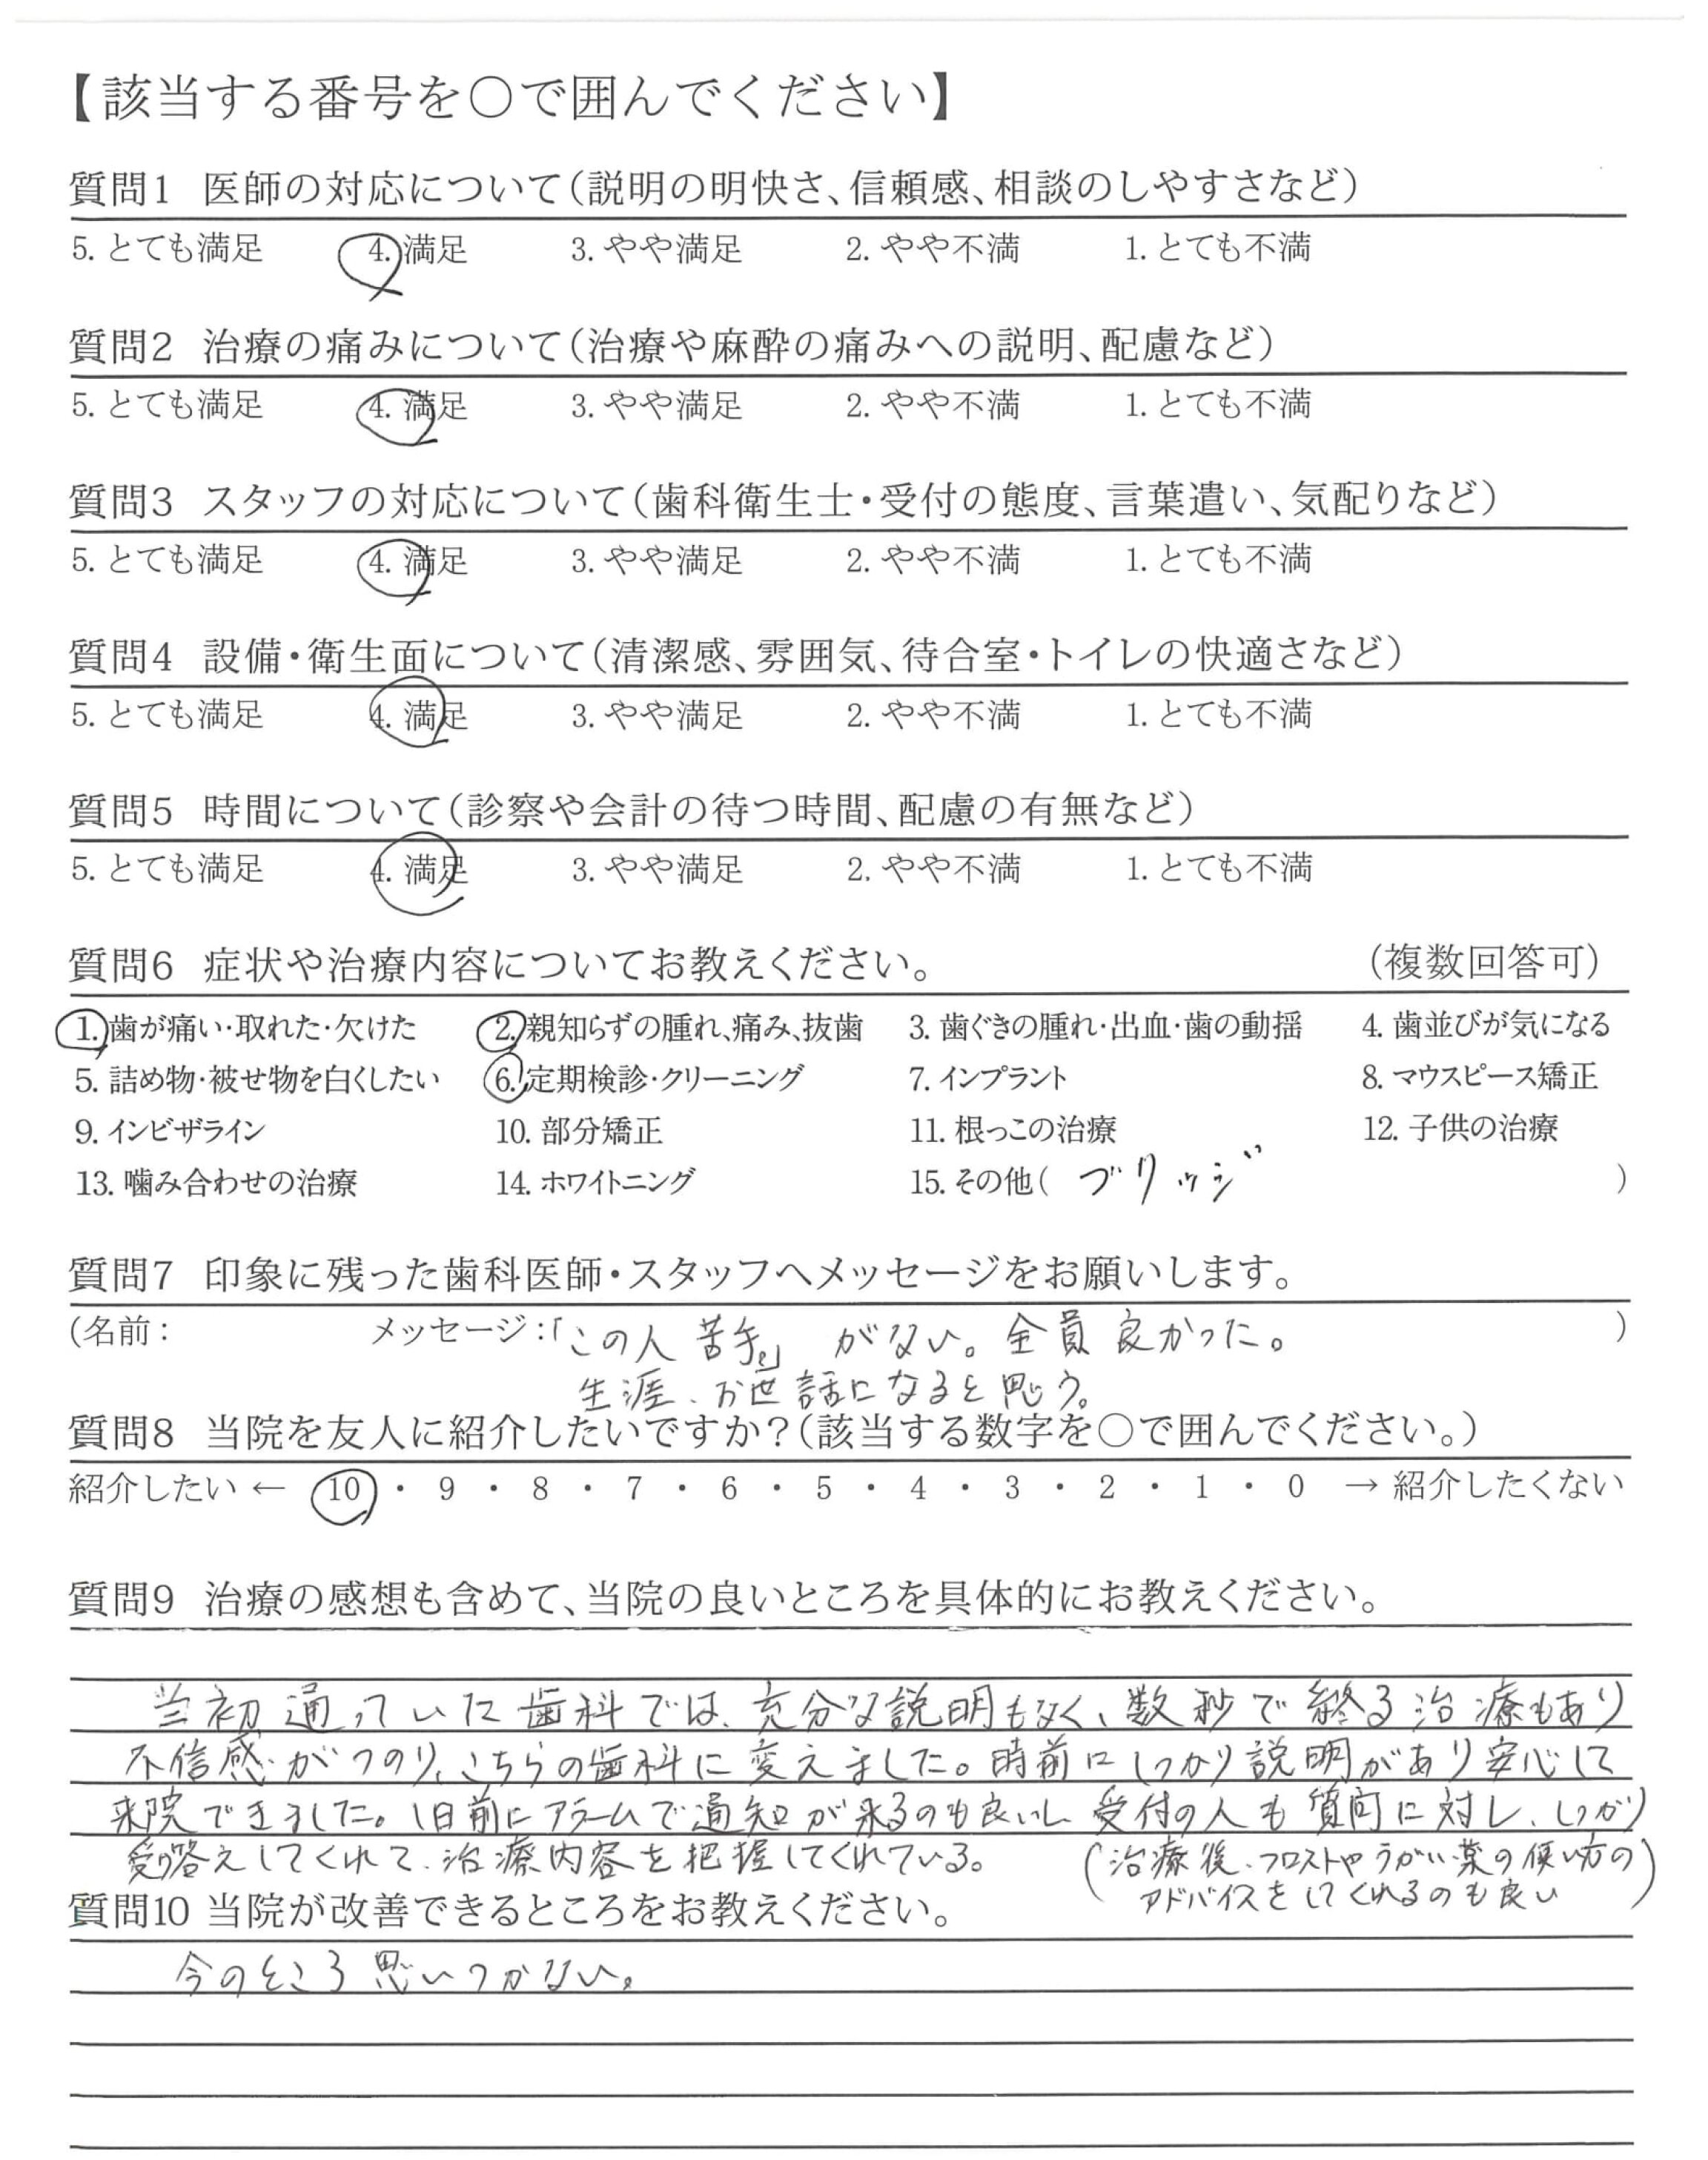 【該当する番号を〇で囲んでください】
質問1 医師の対応について(説明の明快さ、信頼感、相談のしやすさなど)
5. とても満足 4. 満足 3. やや満足 2. やや不満 1. とても不満
質問2 治療の痛みについて(治療や麻酔の痛みへの説明、配慮など)
5. とても満足 4. 満足 3. やや満足 2. やや不満 1. とても不満
質問3 スタッフの対応について(歯科衛生士・受付の態度、言葉遣い、気配りなど)
5. とても満足 4. 満足 3. やや満足 2. やや不満 1. とても不満
質問4 設備・衛生面について(清潔感、雰囲気、待合室・トイレの快適さなど)
5. とても満足 4. 満足 3. やや満足 2. やや不満 1. とても不満
質問5 時間について(診察や会計の待つ時間、配慮の有無など)
5. とても満足 4. 満足 3. やや満足 2. やや不満 1. とても不満
質問6 症状や治療内容についてお教えください。 (複数回答可)
1. 歯が痛い・取れた・欠けた 2. 親知らずの腫れ、痛み、抜歯 3. 歯ぐきの腫れ・出血・歯の動揺 4. 歯並びが気になる
5. 詰め物・被せ物を白くしたい 6. 定期検診・クリーニング 7. インプラント 8. マウスピース矯正
9. インビザライン 10. 部分矯正 11. 根っこの治療 12. 子供の治療
13. 噛み合わせの治療 14. ホワイトニング 15. その他( ブリッジ )
質問7 印象に残った歯科医師・スタッフへメッセージをお願いします。
(名前: メッセージ:「この人 苦手。」がない。全員 良かった。 )
生涯、お世話になると思う。
質問8 当院を友人に紹介したいですか?(該当する数字を〇で囲んでください。)
紹介したい ← 10 ・ 9 ・ 8 ・ 7 ・ 6 ・ 5 ・ 4 ・ 3 ・ 2 ・ 1 ・ 0 → 紹介したくない
質問9 治療の感想も含めて、当院の良いところを具体的にお教えください。
当初通っていた歯科では、充分な説明もなく、数秒で終る治療もあり
不信感がつのり、こちらの歯科に変えました。時前にしっかり説明があり安心して
来院できました。1日前にアラームで通知が来るのも良いし 受付の人も質問に対し、しっかり
受け答えしてくれて、治療内容を把握してくれている。 (治療後、フロストやうがい薬の使い方の
アドバイスをしてくれるのも良い)
質問10 当院が改善できるところをお教えください。
今のところ思いつかない。